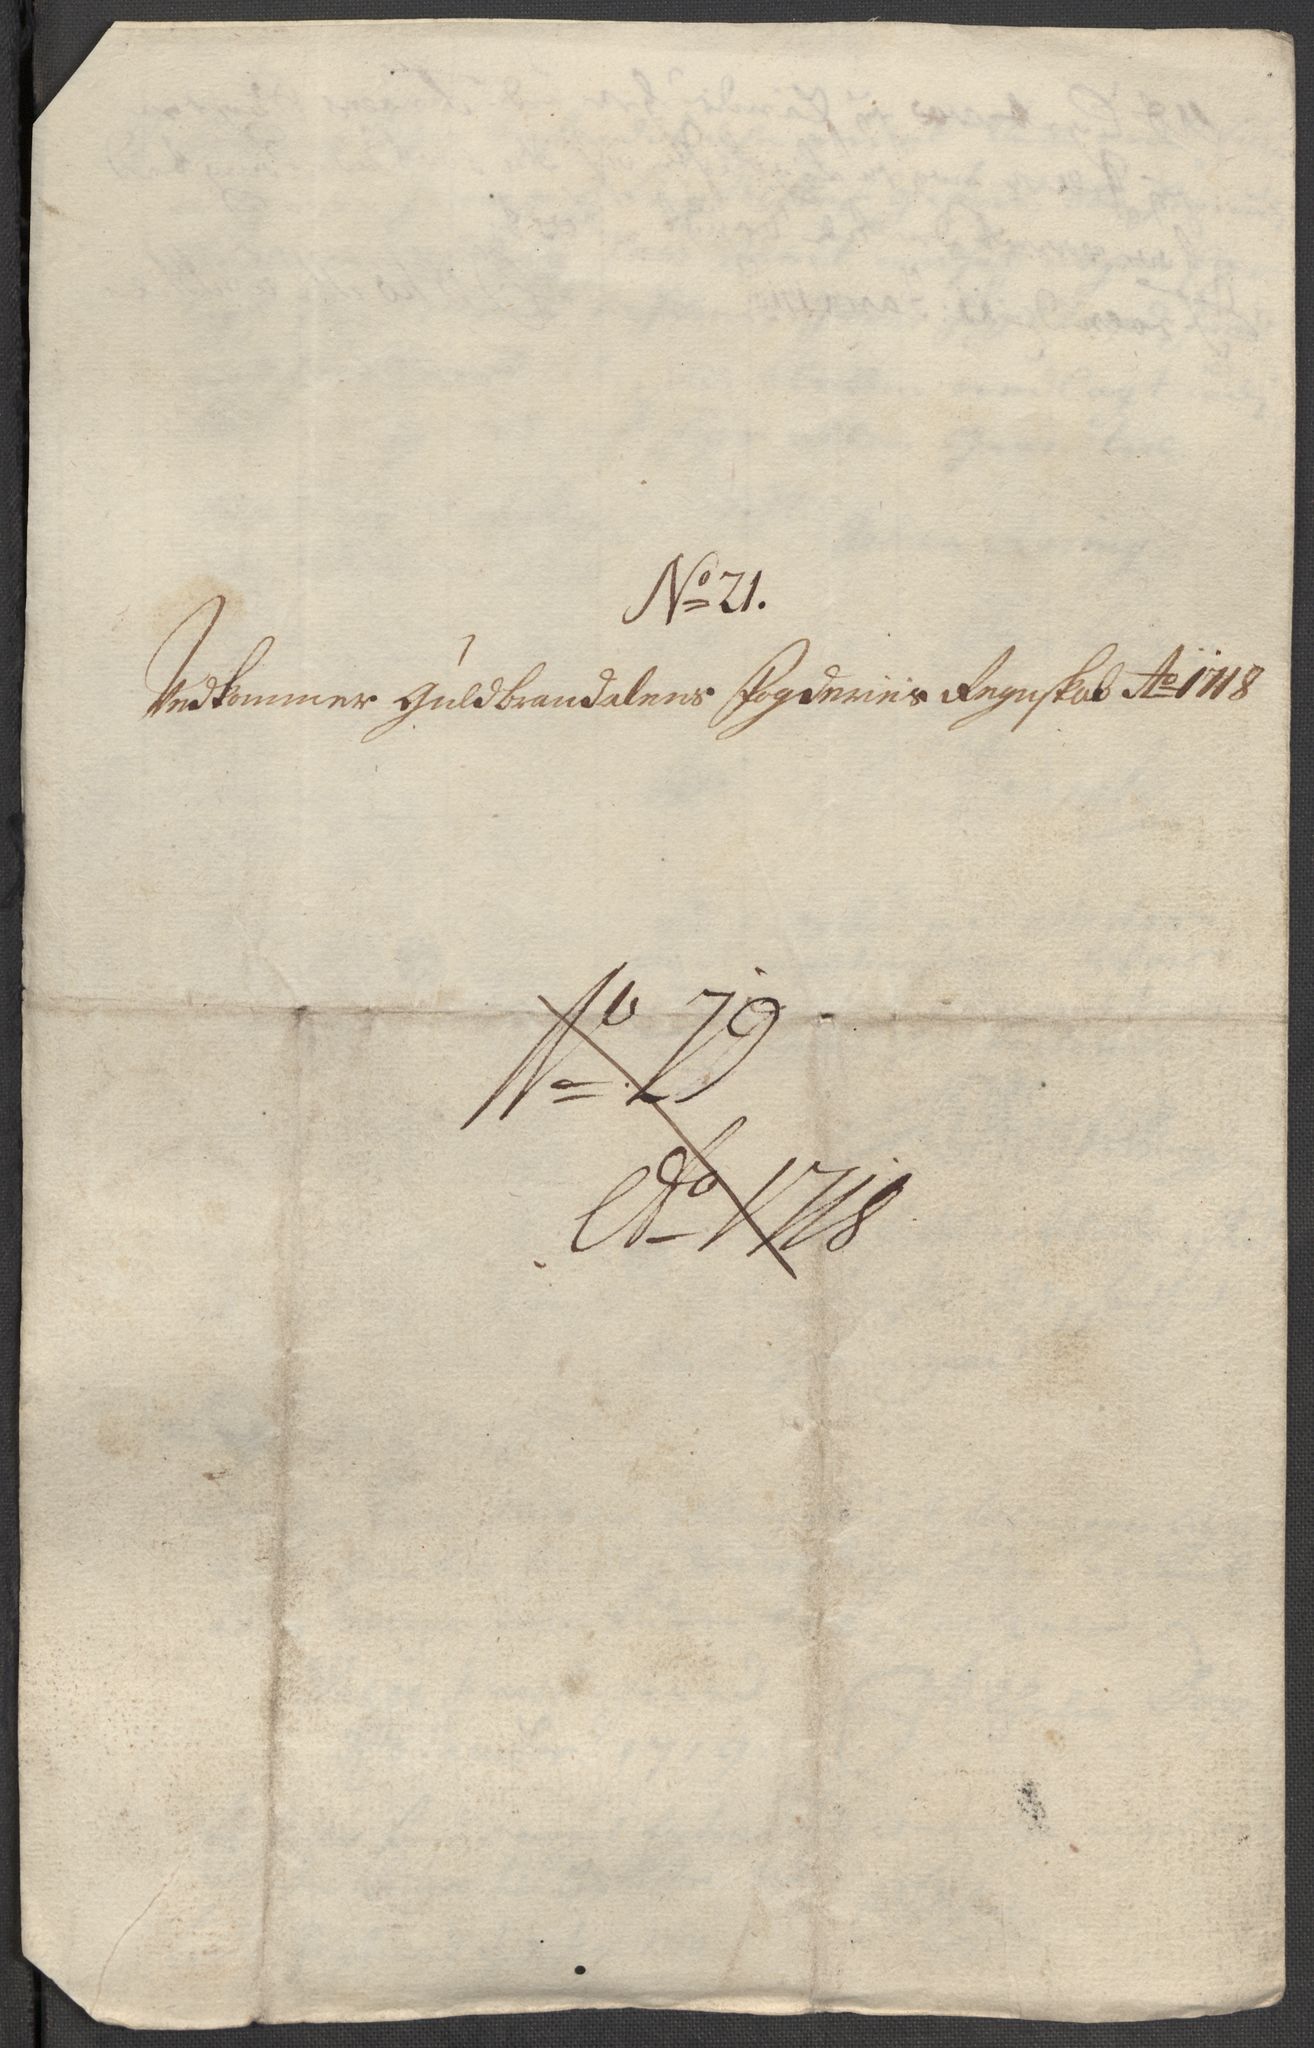 No 21.
Vedkommer Guldbrandalens Fogderies Regnskab Ao 1718
No 29
Ao 1718